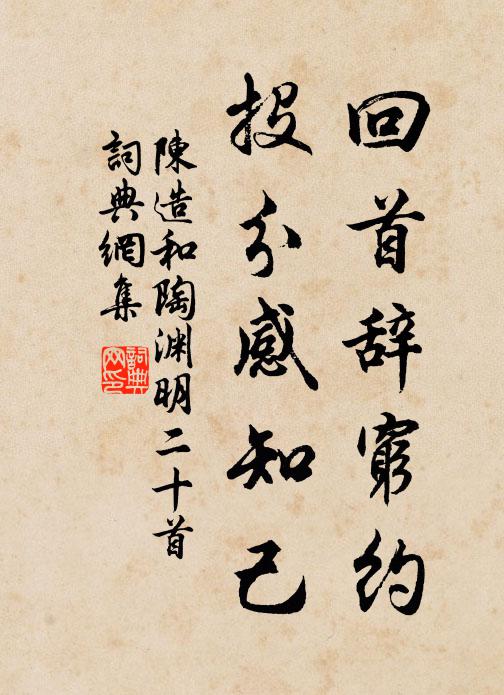 回首辞窮约
投分感知己
陳造和陶渊明二十首
詞典網集
詞典网印